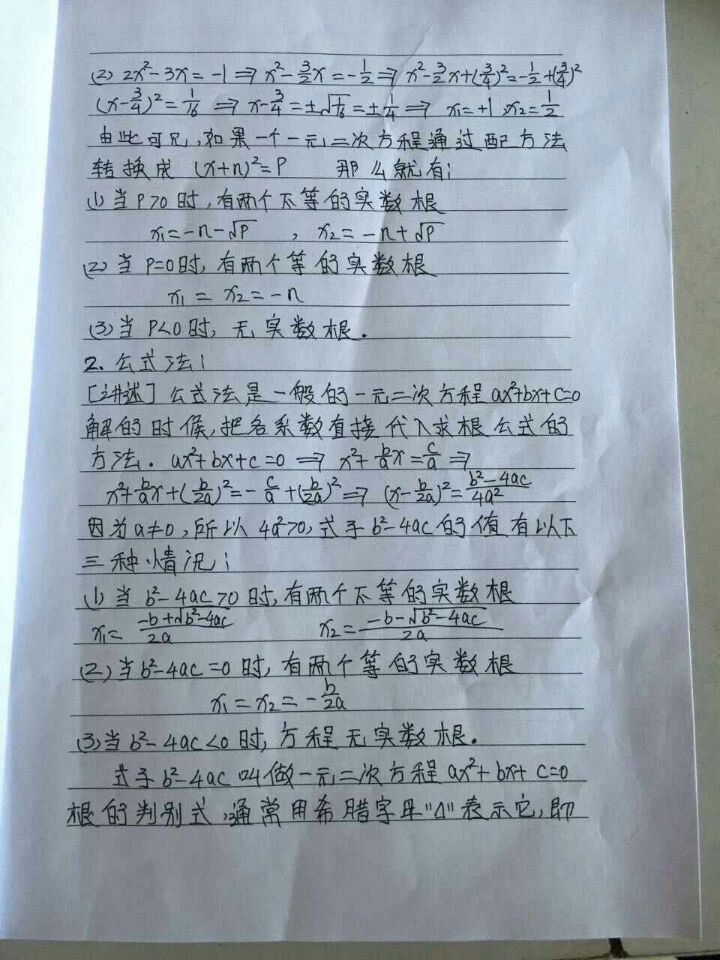 (2) 2x²-3x=-1 ⇒ x²-3/2x=-1/2 ⇒ x²-3/2x+(3/4)²=-1/2+(3/4)²
(x-3/4)²=1/16 ⇒ x-3/4=±√1/16=±1/4 ⇒ x₁=+1, x₂=1/2
由此可见,如果一个一元二次方程通过配方法
转换成 (x+n)²=P 那么就有:
(1)当P>0时,有两个不等的实数根
x₁=-n-√P , x₂=-n+√P
(2)当P=0时,有两个等的实数根
x₁=x₂=-n
(3)当P<0时,无实数根.
2.公式法:
[讲述]公式法是一般的一元二次方程ax²+bx+c=0
解的时候,把各系数直接代入求根公式的
方法. ax²+bx+c=0 ⇒ x²+b/ax=c/a ⇒
x²+b/ax+(b/2a)²=-c/a+(b/2a)² ⇒ (x-b/2a)²=b²-4ac/4a²
因为a≠0,所以4a²>0,式子b²-4ac的值有以下
三种情况:
(1)当b²-4ac>0时,有两个不等的实数根
x₁=-b+√b²-4ac/2a x₂=-b-√b²-4ac/2a
(2)当b²-4ac=0时,有两个等的实数根
x₁=x₂=-b/2a
(3)当b²-4ac<0时,方程无实数根.
式子b²-4ac叫做一元二次方程ax²+bx+c=0
根的判别式,通常用希腊字母"Δ"表示它,即